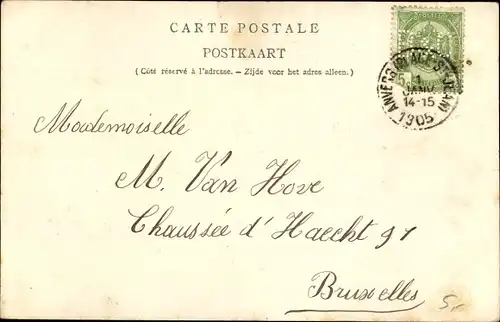 CARTE POSTALE
POSTKAART
(Côté réservé à l'adresse. – Zijde voor het adres alleen.)
ANVERS (PLACE ST JEAN)
1
JANV
14-15
1905
Mademoiselle
M. Van Hove
Chaussée d'Haecht 91
Bruxelles
5,-